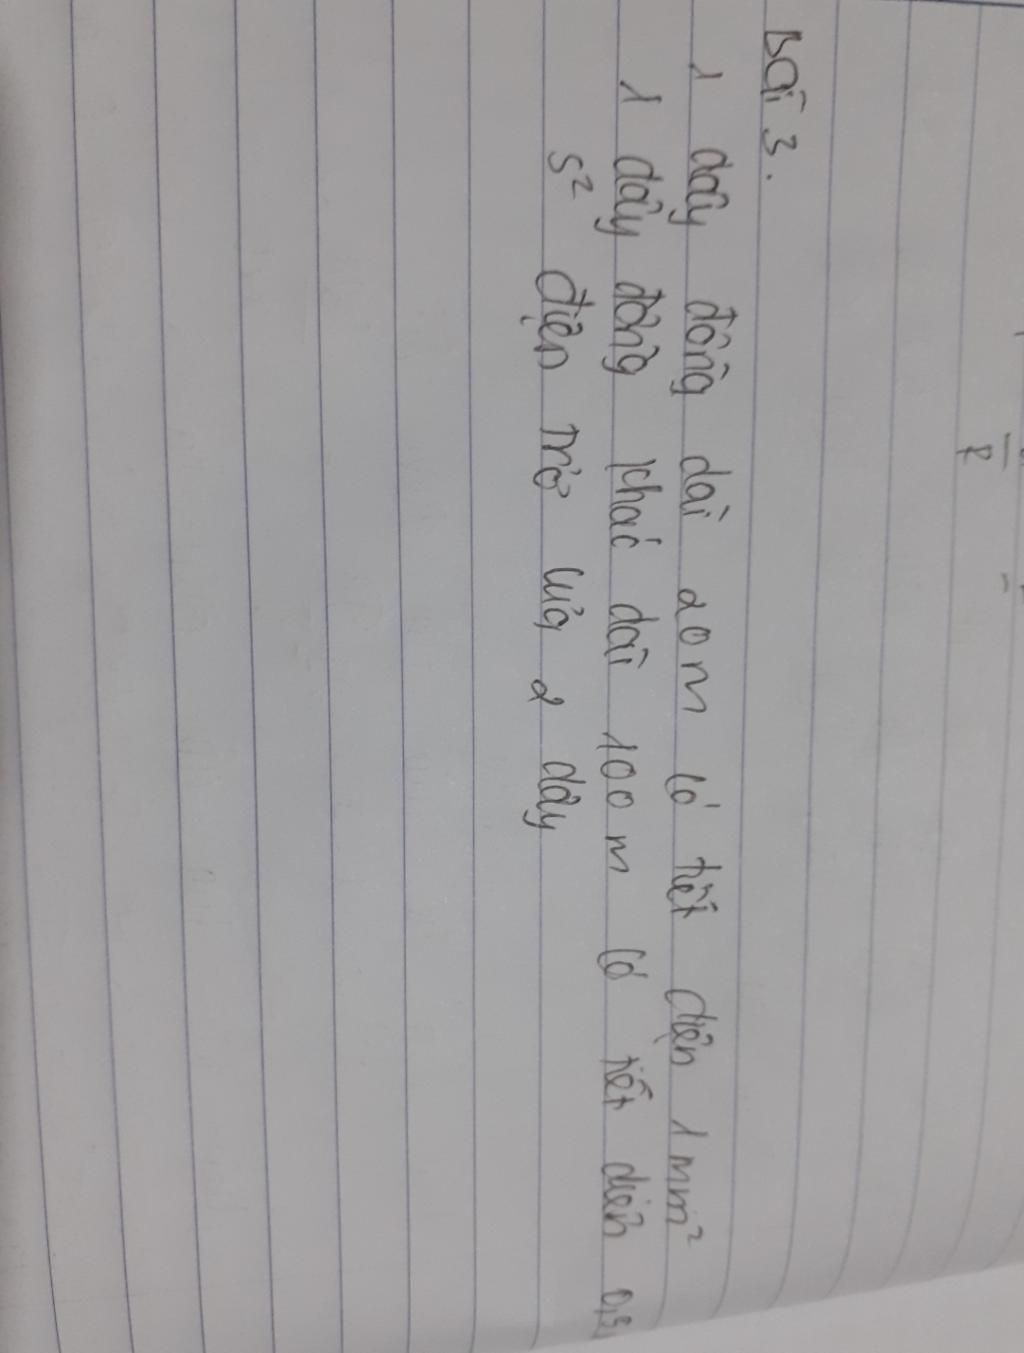 Bài 3.
1 dây đồng dài 20m có tiết diện 1mm²
1 dây đồng khác dài 100m có tiết diện 0,5
s² điện trở của 2 dây